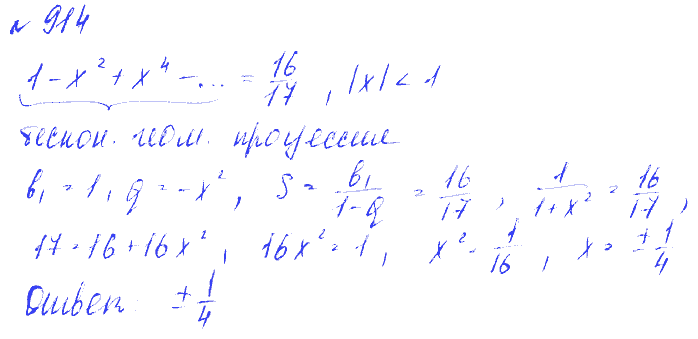 № 914
1 - x² + x⁴ - ... = 16/17, |x| < 1
бескон. геом. прогрессия
b₁ = 1, q = -x², S = b₁/(1-q) = 16/17, 1/(1+x²) = 16/17,
17 = 16 + 16x², 16x² = 1, x² = 1/16, x = ±1/4
Ответ: ±1/4